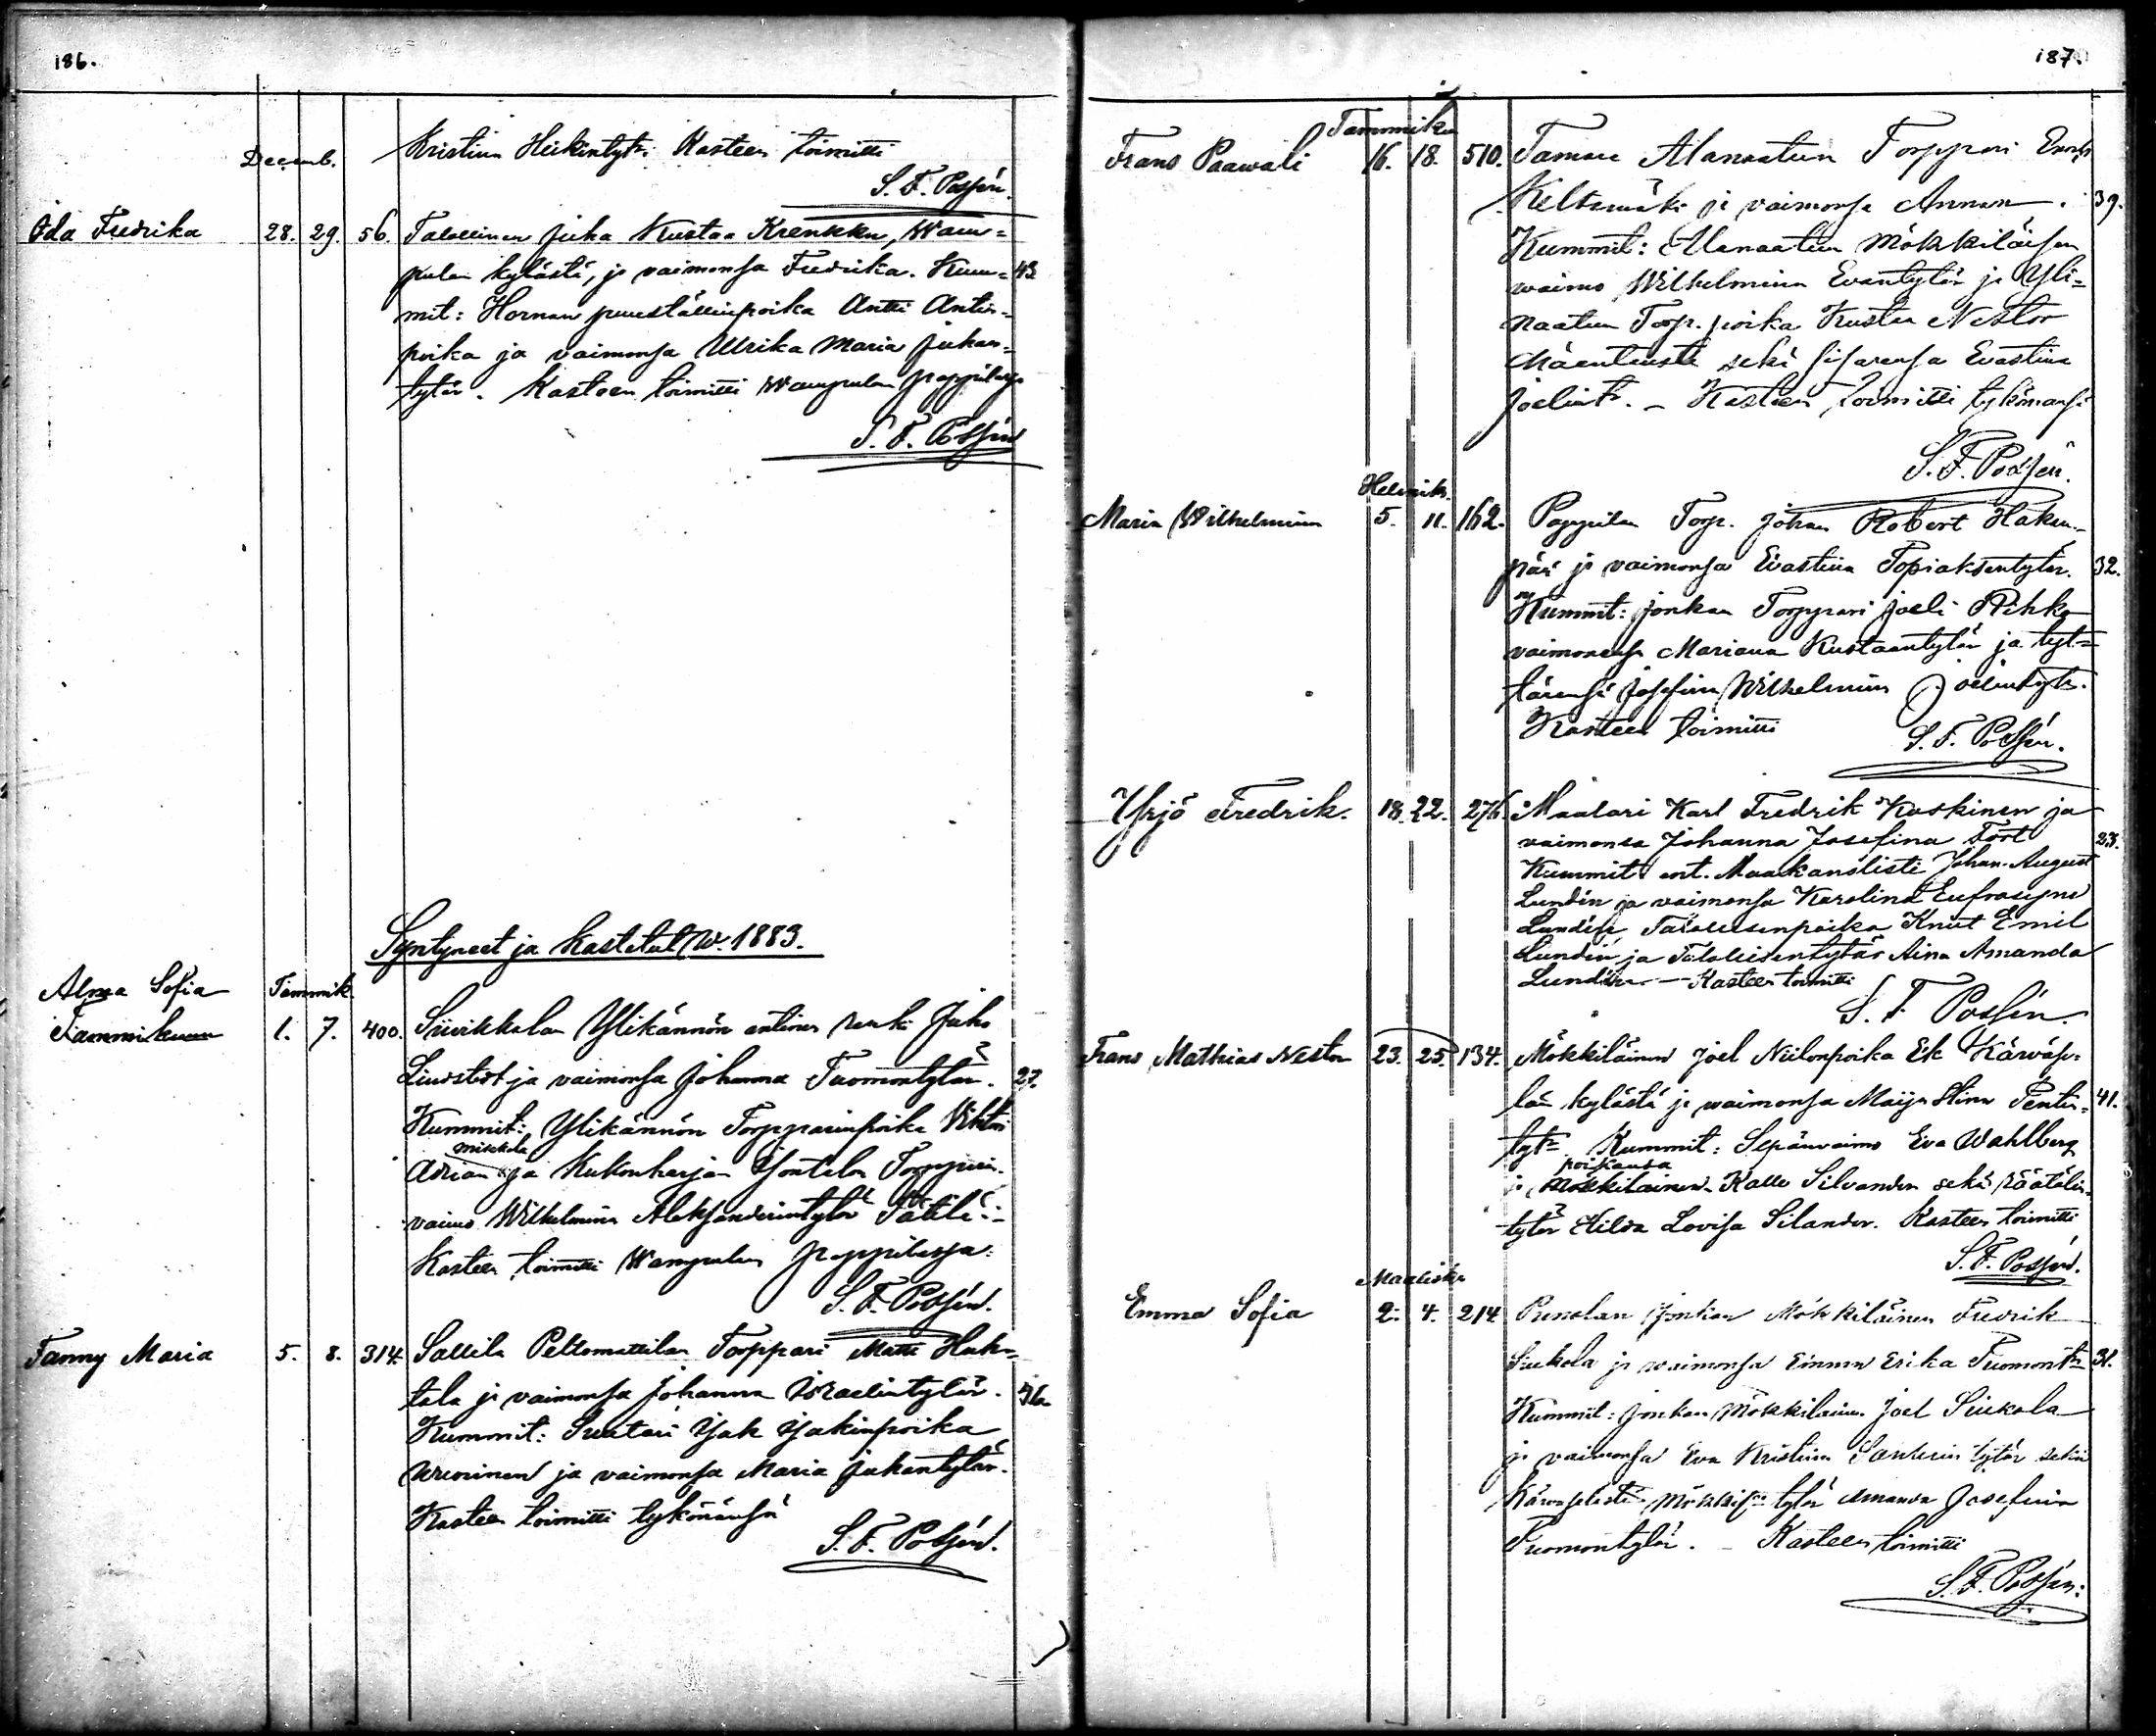 186.
Decemb.
Kristiina Heikintytr. Kasteen toimitti
S. F. Possén.
Ida Fredrika 28. 29. 56. Talollinen Juha Kustaa Krenkku, Wam=
pulan kylästä, ja vaimonsa Fredrika. Kum= 43
mit: Hornan puuställinpoika Antti Antin=
poika ja vaimonsa Ulrika Maria Juhan=
tytär. Kasteen toimitti Wampulan pappilassa
S. F. Possén
Syntyneet ja kastetut w. 1883.
Alma Sofia Tammik.
Tammikuun 1. 7. 400. Siivikkalan Ylikännön entinen renki Juho
Lindstedt ja vaimonsa Johanna Tuomontytär. 27.
Kummit: Ylikännön Torpparinpoika Viktor
Mikkola
Adrian ja Kukonharjan Torpparin
vaimo Wilhelmina Aleksanderintytär
Kasteen toimitti Wampulan pappilassa.
S. F. Possén.
Fanny Maria 5. 8. 314. Sallila Peltomattilan Torppari Matti Huh=
tala ja vaimonsa Johanna Israelintytär. 36
Kummit: Suutari Isak Isakinpoika
Wuorinen ja vaimonsa Maria Juhantytär.
Kasteen toimitti tykönänsä
S. F. Possén.
187.
Tammiku
Frans Paawali 16. 18. 510. Alanaatun Torppari
Keltamäki ja vaimonsa Annan. 39.
Kummit: Alanaatun Mökkiläisen
waimo Wilhelmina Evantytär ja Yli=
naatun Torp. poika Kustaa Nestor
Mäentausta sekä sisarensa Evastina
Joelintr. – Kasteen toimitti tykönänsä
S. F. Possén.
Helmik.
Maria Wilhelmina 5. 11. 162. Pappilan Torp. Johan Robert Haken=
pää ja vaimonsa Evastina Topiaksentytär. 32.
Kummit: Jonkan Torppari Joeli Pihko
vaimonensa Mariana Kustaantytär ja tyt=
tärensä Josefina Wilhelmina Joelintytr.
Kasteen toimitti
S. F. Possén.
Yrjö Fredrik. 18. 22. 276 Maalari Karl Fredrik Koskinen ja
vaimonsa Johanna Josefina Fort 23.
Kummit ent. Maakanslisti Johan August
Lundén ja vaimonsa Karolina Eufrosyne
Lundén Talollisenpoika Knut Emil
Lundén ja Talollisentytär Aina Amanda
Lundén. — Kasteen toimitti
S. F. Possén.
Frans Mathias Nestor 23. 25. 134. Mökkiläinen Joel Niilonpoika Ek Kärväs=
län kylästä ja waimonsa Maija Stina Pentin= 41.
tytr. Kummit: Sepänvaimo Eva Wahlberg
poikansa
ja Mökkiläinen Kalle Silvander sekä räätälin
tytär Hilda Lovisa Silander. Kasteen toimitti
S. F. Possén.
Maalisku
Emma Sofia 2. 4. 214 Punolan Jonkan Mökkiläinen Fredrik
Siukola ja waimonsa Emma Erika Tuomontr. 31.
Kummit: Jonkan Mökkiläinen Joel Siukola
ja vaimonsa Eva Kristiina Santerin tytär sekä
tytär Amanda Josefiina
Tuomontytär. – Kasteen toimitti
S. F. Possén.